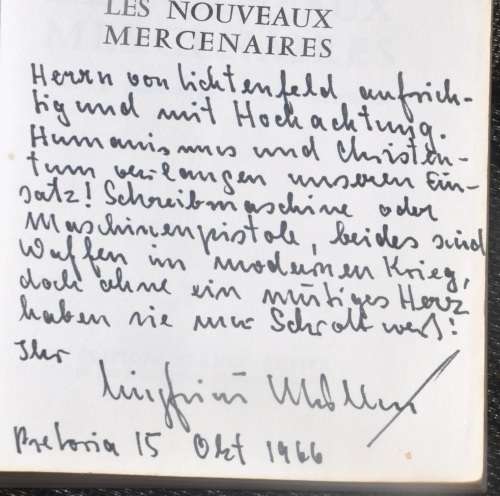 LES NOUVEAUX
MERCENAIRES
Herrn von Lichtenfeld aufrich-
tig und mit Hochachtung.
Humanismus und Christen-
tum verlangen unseren Ein-
satz! Schreibmaschine oder
Maschinenpistole, beides sind
Waffen im modernen Krieg,
doch ohne ein mutiges Herz
haben sie nur Schrottwert!
Ihr
Siegfried Müller
Pretoria 15 Okt 1966